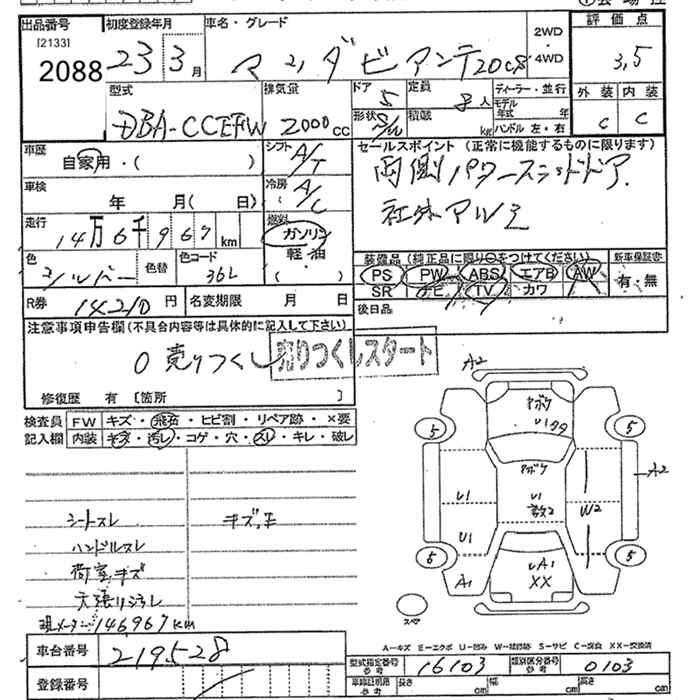 出品番号
[2133]
2088
初度登録年月
23 3月
車名・グレード
マツダビアンテ20CS
2WD
・
4WD
評価点
3,5
外装 内装
C C
型式
DBA-CCEFW
排気量
2000cc
ドア
5
形状
S/W
定員
8人
積載
kg
ディーラー・並行
モデル年式 年
ハンドル 左・右
車歴
自家用・( )
シフト
A/T
車検
年 月( 日)
冷房
A/C
走行
14万6千967km
燃料
ガソリン
軽・油
( )
色
シルバー
色替
色コード
36L
R券 14210円
名変期限 月 日
セールスポイント(正常に機能するものに限ります)
両側パワースライドドア.
社外アルミ
装備品(純正品に限り○をつけてください)
PS PW ABS エアB AW
SR ナビ TV カワ
新車保証書
有・無
後日品
注意事項申告欄(不具合内容等は具体的に記入して下さい)
0 売りつくし
売りつくしスタート
修復歴 有[箇所 ]
検査員 FW キズ・飛石・ヒビ割・リペア跡・×要
記入欄 内装 キズ・汚レ・コゲ・穴・スレ・キレ・破レ
シートスレ
ハンドルスレ
荷室キズ
天張リヨゴレ
現メーター146967km
A2
アバタ
U1
5 5
アバタ
A2
U1 U1 W2
U1
5 5
A1
UA1
XX
スペア
A-キズ E-エクボ U-凹み W-補修跡 S-サビ C-腐食 XX-交換済
車台番号 219528
登録番号
型式指定番号 参考 16103
類別区分番号 参考 0103
車庫証明用 参考
長さ cm 幅 cm 高さ cm